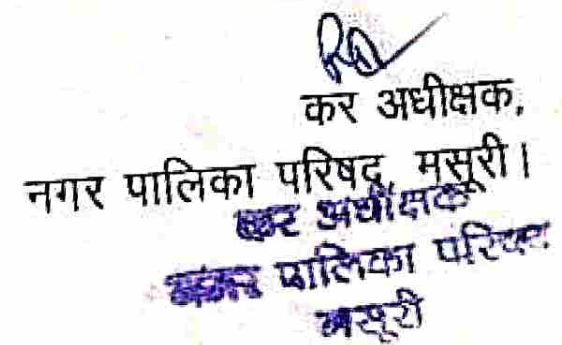 कर अधीक्षक,
नगर पालिका परिषद, मसूरी।
कर अधीक्षक
नगर पालिका परिषद
मसूरी